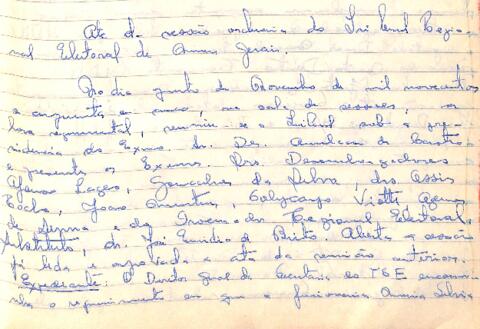 Ata da sessão ordinária do Tribunal Regio-
nal Eleitoral de Minas Gerais.
No dia de Novembro de mil novecentos
e cinquenta e cinco, na sala de sessões, na
hora regimental, reuniu-se o Tribunal sob a pre-
sidencia do Exmo. Sr. Des. Amilcar de Castro
e presentes os Exmos. Srs. Desembargadores
Afonso Lages, Gonçalves da Silva, drs. Assis
Rocha, João Policarpo Viotti,
de e do Procurador Regional Eleitoral
Substituto, dr. José de Brito. Aberta a sessão
foi lida e aprovada a ata da reunião anterior.
Expediente: O Diretor Geral da Secretaria do TSE encami-
nha o requerimento em que a funcionaria Silvia